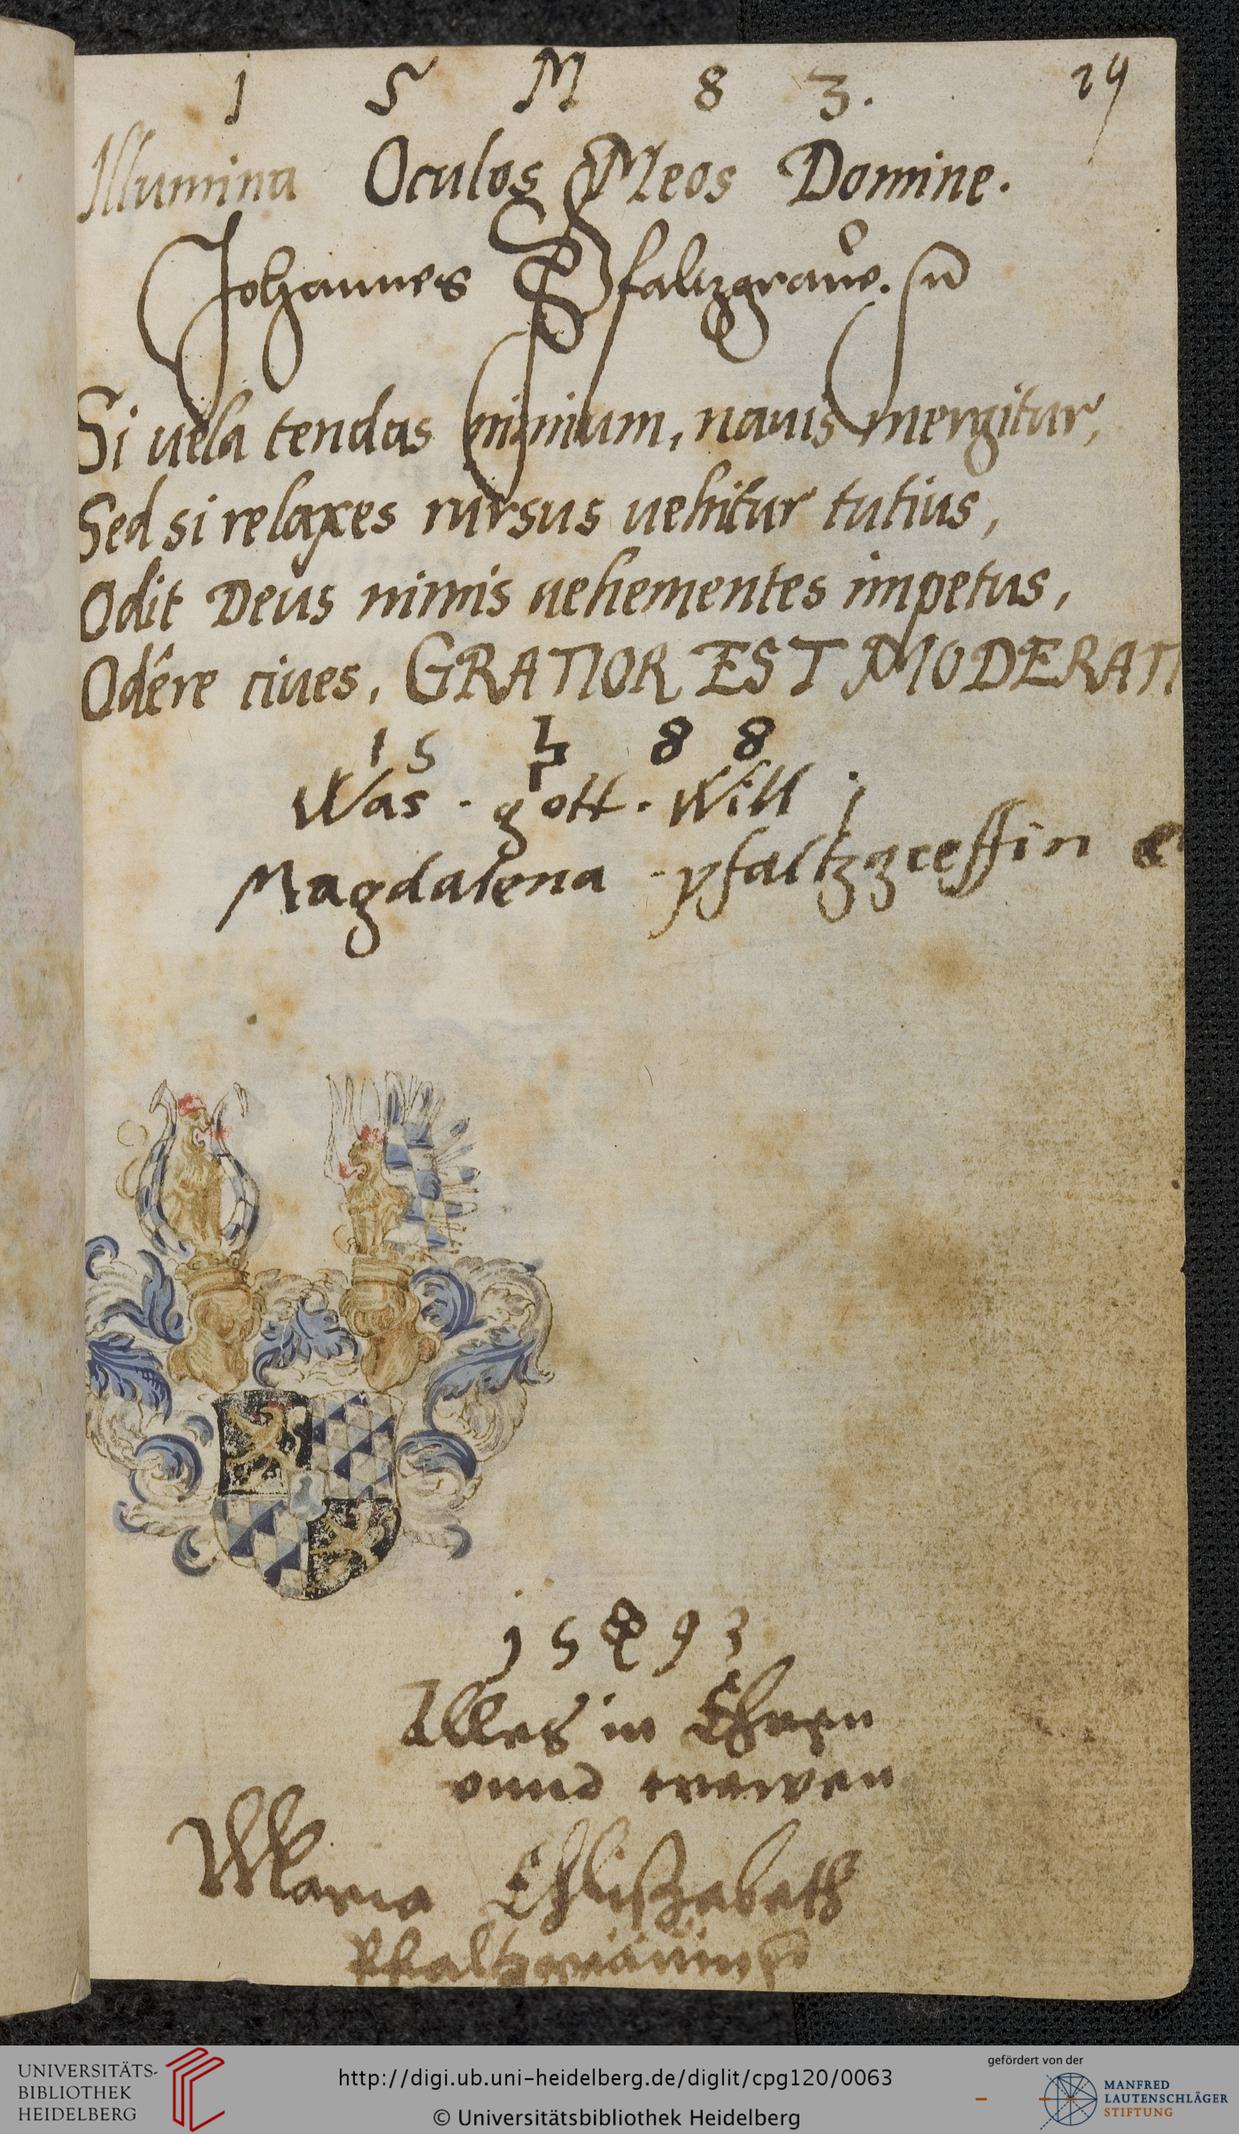 1 5 M 8 3. 29
Illumina Oculos Meos Domine.
Johannes Pfaltzgraue.
Si uela tendas nimium, nauis mergitur,
Sed si relaxes rursus uehitur tutius,
Odit Deus nimis uehementes impetus,
Odêre ciues, GRATIOR EST MODERATI
15 88
Was · gott · Will
Magdalena · pfaltzgreffin
15 93
Alles in Ehren
vnnd trewen
Maria Ehliszabeth
UNIVERSITÄTS-
BIBLIOTHEK
HEIDELBERG
http://digi.ub.uni-heidelberg.de/diglit/cpg120/0063
© Universitätsbibliothek Heidelberg
gefördert von der
MANFRED
LAUTENSCHLÄGER
STIFTUNG